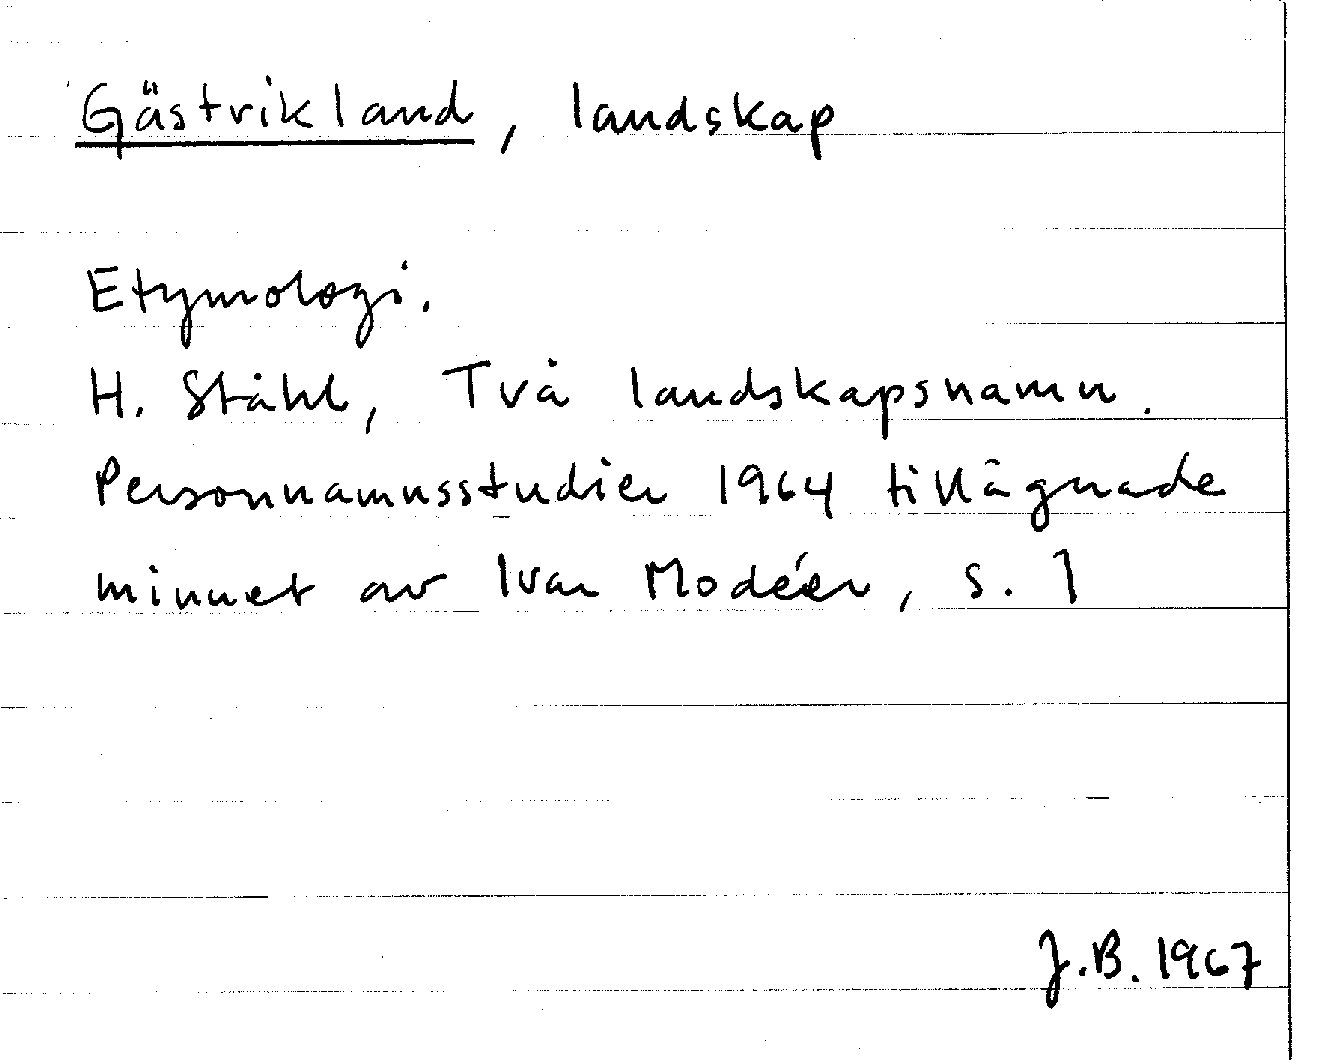 Gästrikland, landskap
Etymologi.
H. Ståhl, Två landskapsnamn.
Personnamnsstudier 1964 tillägnade
minnet av Ivar Modéer, s. 1
J.B. 1967